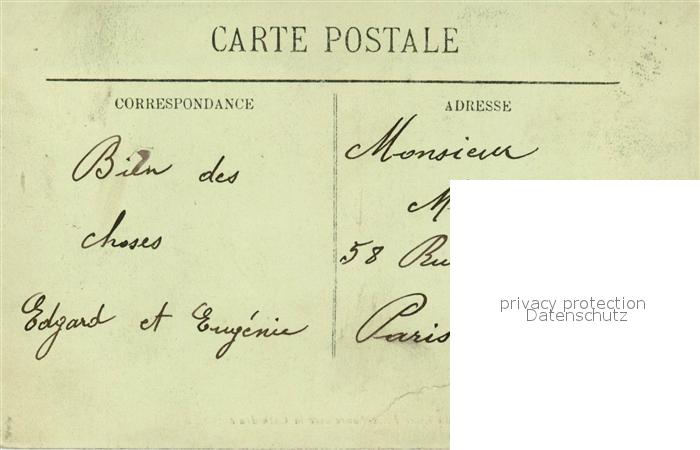 CARTE POSTALE
CORRESPONDANCE
ADRESSE
Bien des
choses
Edgard et Eugénie
Monsieur
M
58 Ru
Paris
privacy protection
Datenschutz